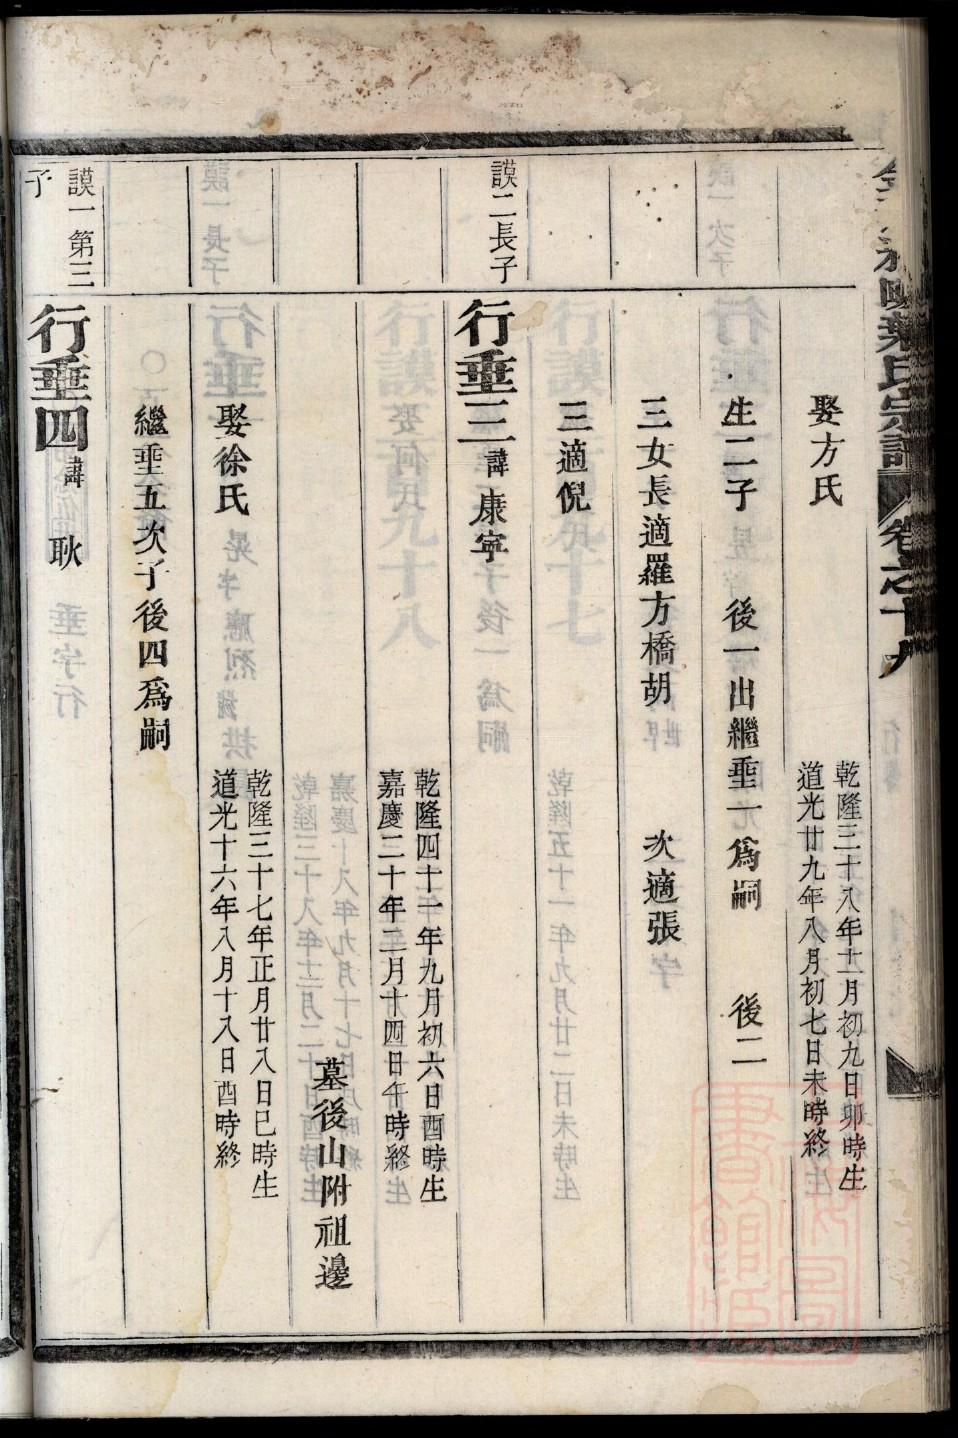 葉氏宗譜 卷之十八
娶方氏
乾隆三十八年十二月初九日卯時生
道光廿九年八月初七日未時終
生二子 後一出繼垂一爲嗣 後二
三女長適羅方橋胡 次適張
三適倪
謨二長子
行垂三 諱康寧
乾隆四十一年九月初六日酉時生
嘉慶二十年二月十四日午時終
墓後山附祖邊
娶徐氏
乾隆三十七年正月廿八日巳時生
道光十六年八月十八日酉時終
繼垂五次子後四爲嗣
謨一第三子
行垂四 諱耿